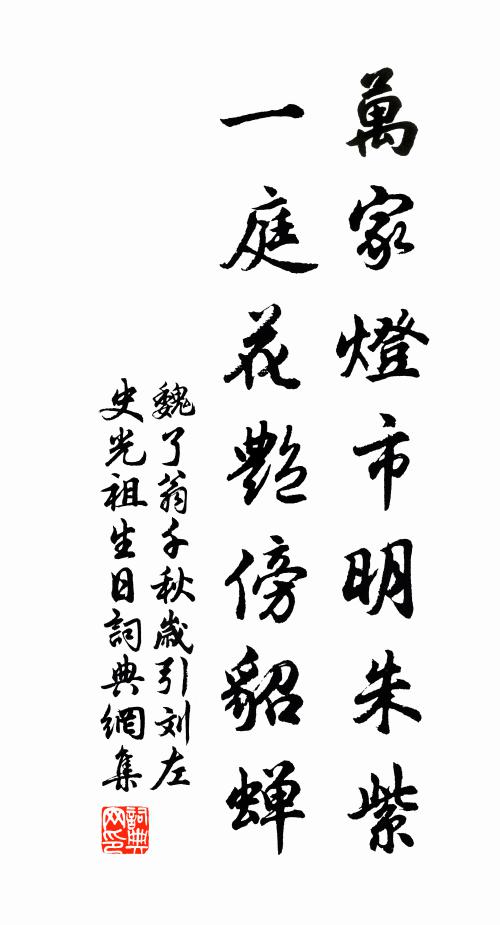 萬家燈市明朱紫
一庭花艷傍貂蟬
魏了翁千秋歲引刘左
史光祖生日詞典網集
詞典
网印